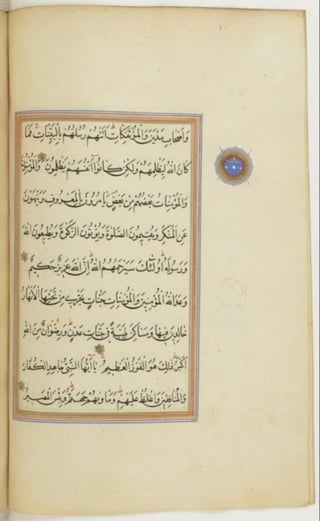 وَاَصْحَابِ مَدْيَنَ وَالْمُؤْتَفِكَاتِ اَتَتْهُمْ رُسُلُهُمْ بِالْبَيِّنَاتِ فَمَا
كَانَ اللهُ لِيَظْلِمَهُمْ وَلٰكِنْ كَانُوا اَنْفُسَهُمْ يَظْلِمُونَ وَالْمُؤْمِنُونَ
وَالْمُؤْمِنَاتُ بَعْضُهُمْ مِنْ بَعْضٍ يَاْمُرُونَ بِالْمَعْرُوفِ وَيَنْهَوْنَ
عَنِ الْمُنْكَرِ وَيُقِيمُونَ الصَّلٰوةَ وَيُؤْتُونَ الزَّكٰوةَ وَيُطِيعُونَ اللهَ
وَرَسُولَهُ اُولٰئِكَ سَيَرْحَمُهُمُ اللهُ اِنَّ اللهَ عَزِيزٌ حَكِيمٌ
وَعَدَ اللهُ الْمُؤْمِنِينَ وَالْمُؤْمِنَاتِ جَنَّاتٍ تَجْرِي مِنْ تَحْتِهَا الْاَنْهَارُ
خَالِدِينَ فِيهَا وَمَسَاكِنَ طَيِّبَةً فِي جَنَّاتِ عَدْنٍ وَرِضْوَانٌ مِنَ اللهِ
اَكْبَرُ ذٰلِكَ هُوَ الْفَوْزُ الْعَظِيمُ يَا اَيُّهَا النَّبِيُّ جَاهِدِ الْكُفَّارَ
وَالْمُنَافِقِينَ وَاغْلُظْ عَلَيْهِمْ وَمَاْوٰيهُمْ جَهَنَّمُ وَبِئْسَ الْمَصِيرُ